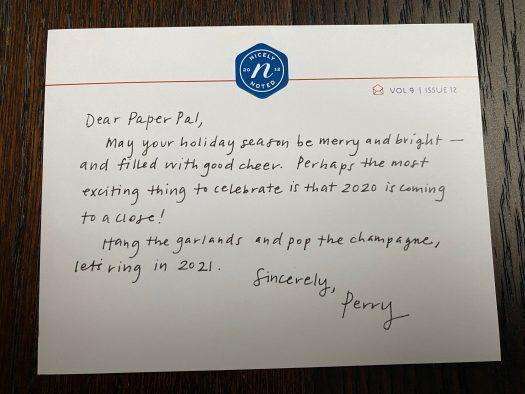 NICELY
20 n 12
NOTED
VOL 9 | ISSUE 12
Dear Paper Pal,
May your holiday season be merry and bright —
and filled with good cheer. Perhaps the most
exciting thing to celebrate is that 2020 is coming
to a close!
Hang the garlands and pop the champagne,
let's ring in 2021.
Sincerely,
Perry